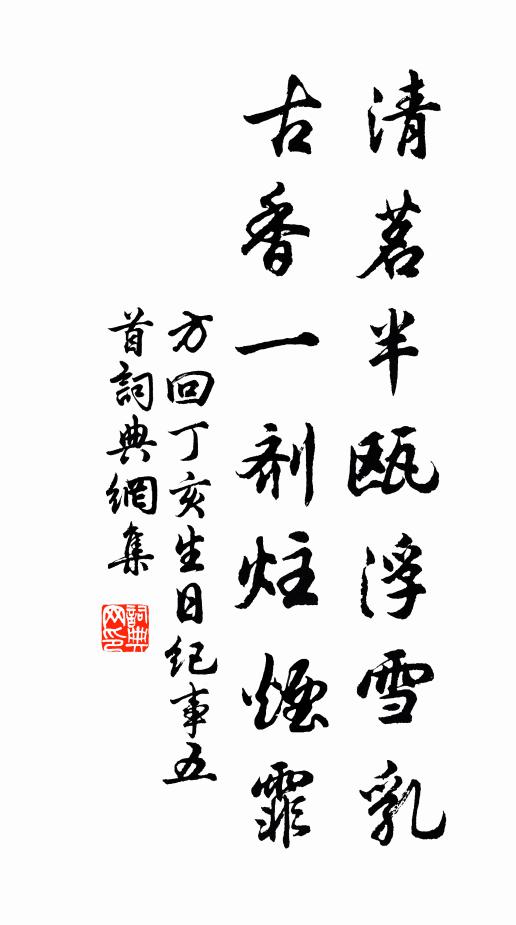 清茗半甌浮雪乳
古香一剤炷煙霏
方回丁亥生日纪事五
首詞典網集
詞典
网印